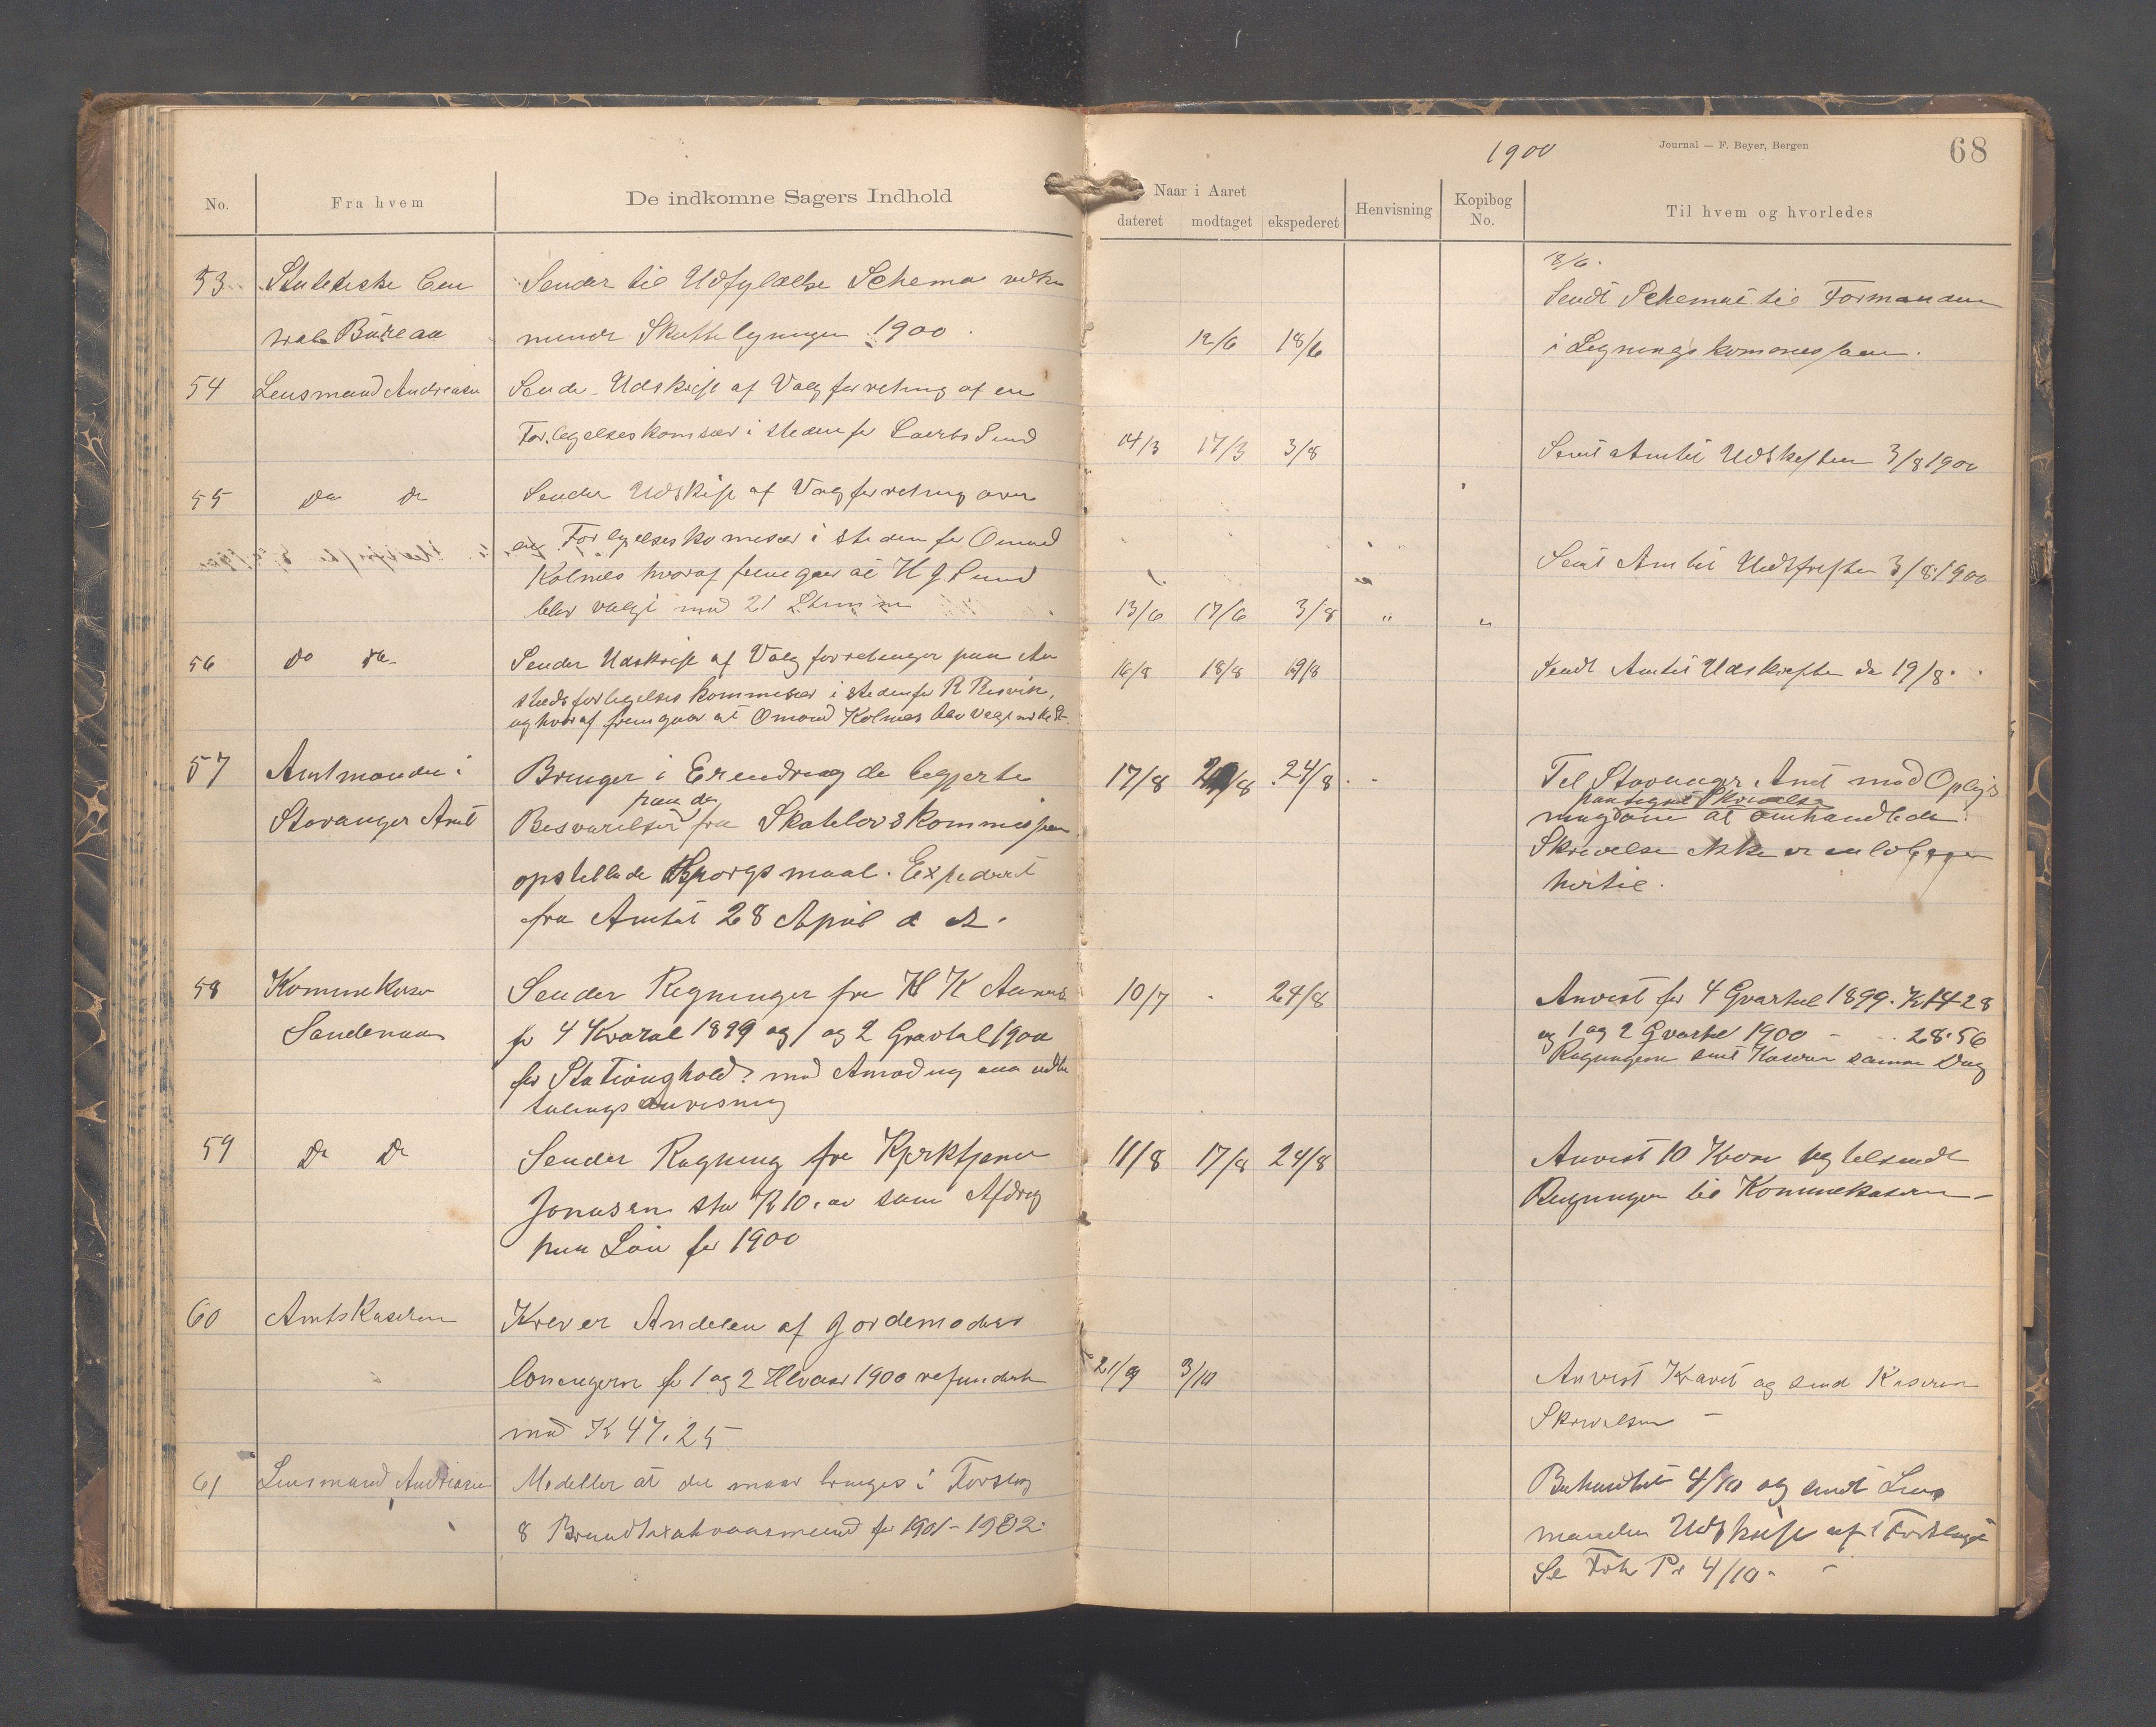 1900
Journal — F. Beyer, Bergen
68
No.
Fra hvem
De indkomne Sagers Indhold
Naar i Aaret
dateret
modtaget
ekspederet
Henvisning
Kopibog No.
Til hvem og hvorledes
53
Statistiske Cen
tral Büreau
Sender til Udfyldelse Schema vedko
mende Skatteligningen 1900.
12/6
18/6
18/6.
Sendt Schemaet til Formanden
i Ligningskommissionen.
54
Lensmand Andreasen
Sender Udskrift af Valgforretning af en
Forligelseskomisær i stedenfor Laurts Sund
14/3
17/3
3/8
Sent Amtet Udskriften 3/8 1900
55
Do Do
Sender Udskrift af Valgforretning over
en Forligelseskomisær i stedenfor Omund
Kolnes hvoraf fremgaar at H J Sund
blev valgt med 21 Stemmer
13/6
17/6
3/8
"
"
Sent Amtet Udskriften 3/8 1900
56
Do Do
Sender Udskrift af Valgforretninger paa
forligelses kommisær i stedenfor R Risvik,
og hvoraf fremgaar at Omund Kolnes blev valgt
16/8
18/8
19/8
Sendt Amtet Udskriften da 19/8.
57
Amtmanden i
Stavanger Amt
Bringer i Erindring de begjerte
paa de
Besvarelser fra Skattelovskommissionen
opstillede Spørgsmaal. Expedert
fra Amtet 28 April d A.
17/8
/8
24/8
Til Stavanger Amt med Oplys
paategnet Skrivelse
ning om at omhandlede
Skrivelse ikke er indløben
hertil.
58
Kommunekaserer
Sandenaa
Sender Regninger fra H K
for 4 Kvartal 1899 og 1 og 2 Qvartal 1900
for Stationghold. med Anmodning om udbe
talings anvisning
10/7
24/8
Anvist for 4 Qvartal 1899. K 14 28
og 1 og 2 Qvartal 1900 - 28.56
Regningerne sent Kaserer samme Dag
59
Do Do
Sender Regning fra Kjrktjener
Jonasen stor K 10. som Afdrag
paa Løn for 1900
11/8
17/8
24/8
Anvist 10 Kroner og tilsendt
Regningen til Kommunekasereren -
60
Amtskasereren
Krever Andelen af Jordemoder
lønningerne for 1 og 2 Halvaar 1900 refunderet
med K 47.25
21/9
3/10
Anvist Kravet og send Kasereren
Skrivelsen -
61
Lensmand Andreasen
Meddeler at der maa bringes i Forslag
8 Brandtaxationsmænd for 1901-1902.
Behandlet 4/10 og sendt Lens
manden Udskrift af Forslaget
Se Foh Pr 4/10.